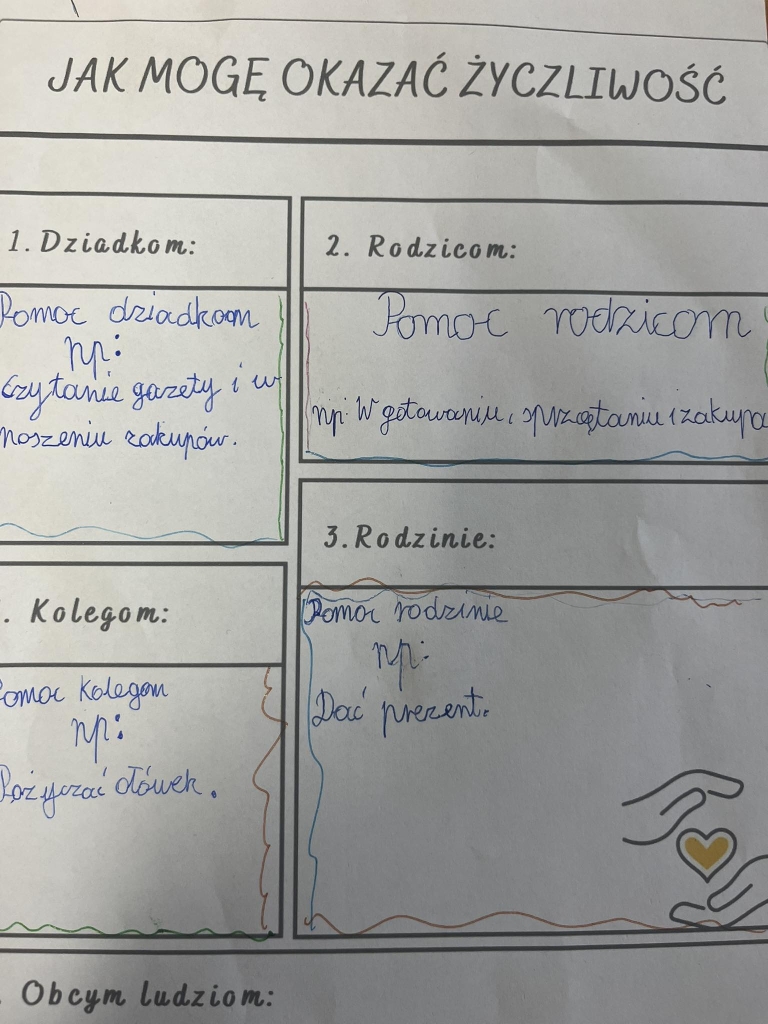 JAK MOGĘ OKAZAĆ ŻYCZLIWOŚĆ
1. Dziadkom:
Pomoc dziadkom
np:
Czytanie gazety i w
noszeniu zakupów.
2. Rodzicom:
Pomoc rodzicom
np. W gotowaniu, sprzątaniu i zakupa
3. Rodzinie:
Pomoc rodzinie
np:
Dać prezent.
. Kolegom:
Pomoc kolegom
np:
Pożyczać ołówek.
. Obcym ludziom: